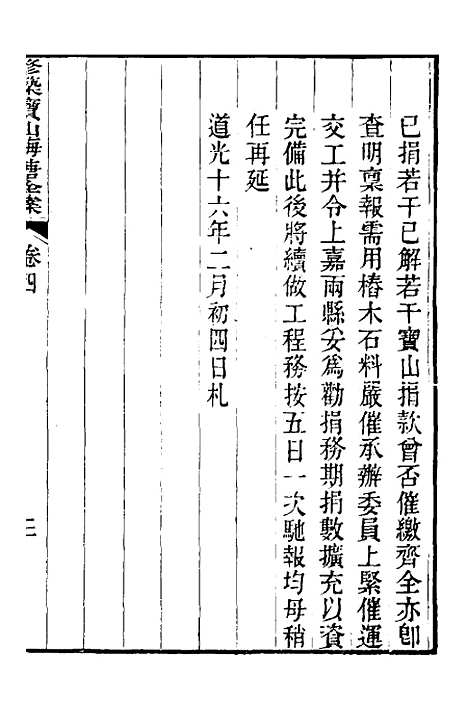 已捐若干已解若干寶山捐款曾否催繳齊全亦卽
查明稟報需用樁木石料嚴催承辦委員上緊催運
交工并令上嘉兩縣妥爲勸捐務期捐數擴充以資
完備此後將續做工程務按五日一次馳報均毋稍
任再延
道光十六年二月初四日札
修築寶山海塘全案
卷四